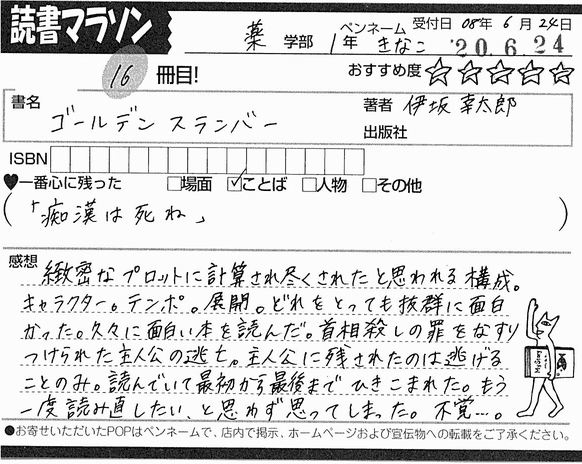 読書マラソン
薬 学部 1年 ペンネーム きなこ 受付日 08年 6月 24日
'20.6.24
16 冊目!
おすすめ度 ☆☆☆☆☆
書名 ゴールデンスランバー
著者 伊坂幸太郎
出版社
ISBN
♥一番心に残った □場面 ☑ことば □人物 □その他
(「痴漢は死ね」)
感想 緻密なプロットに計算され尽くされたと思われる構成。
キャラクター。テンポ。展開。どれをとっても抜群に面白
かった。久々に面白い本を読んだ。首相殺しの罪をなすり
つけられた主人公の逃亡。主人公に残されたのは逃げる
ことのみ。読んでいて最初から最後までひきこまれた。もう
一度読み直したい、と思わず思ってしまった。不覚…。
●お寄せいただいたPOPはペンネームで、店内で掲示、ホームページおよび宣伝物への転載をご了承ください。